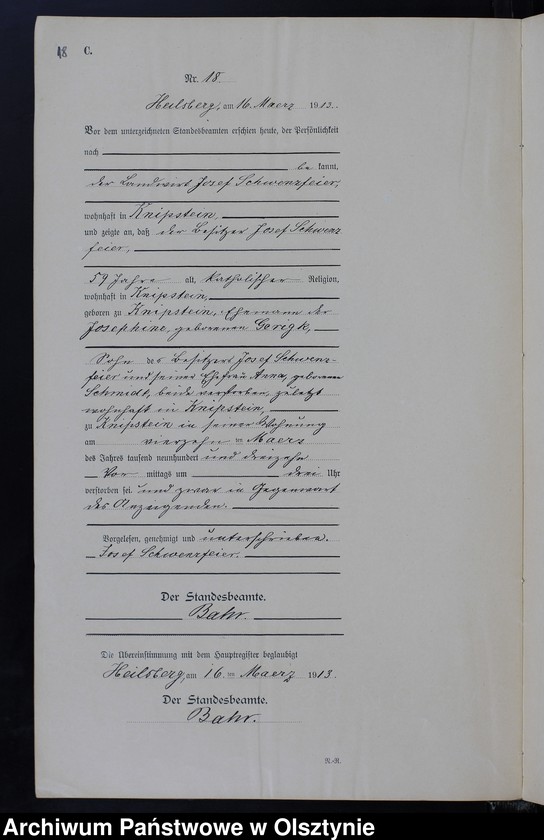 18 C.
Nr. 18
Heilsberg, am 16. Maerz 1913.
Vor dem unterzeichneten Standesbeamten erschien heute, der Persönlichkeit
nach
be kannt,
der Landwirt Josef Schwenzfeier,
wohnhaft in Knipstein,
und zeigte an, daß der Besitzer Josef Schwenz
feier,
59 Jahre alt, katholischer Religion,
wohnhaft in Knipstein,
geboren zu Knipstein, Ehemann der
Josephine, geborenen Gerigk,
Sohn des Besitzers Josef Schwenz-
feier und seiner Ehefrau Anna, geborenen
Schmidt, beide verstorben, zuletzt
wohnhaft in Knipstein,
zu Knipstein in seiner Wohnung
am vierzehn ten Maerz
des Jahres tausend neunhundert und dreizehn
Vor mittags um drei Uhr
verstorben sei und zwar in Gegenwart
des Anzeigenden.
Vorgelesen, genehmigt und unterschrieben.
Josef Schwenzfeier.
Der Standesbeamte.
Bahr.
Die Übereinstimmung mit dem Hauptregister beglaubigt
Heilsberg, am 16. ten Maerz 1913.
Der Standesbeamte.
Bahr.
R.-R.
Archiwum Państwowe w Olsztynie